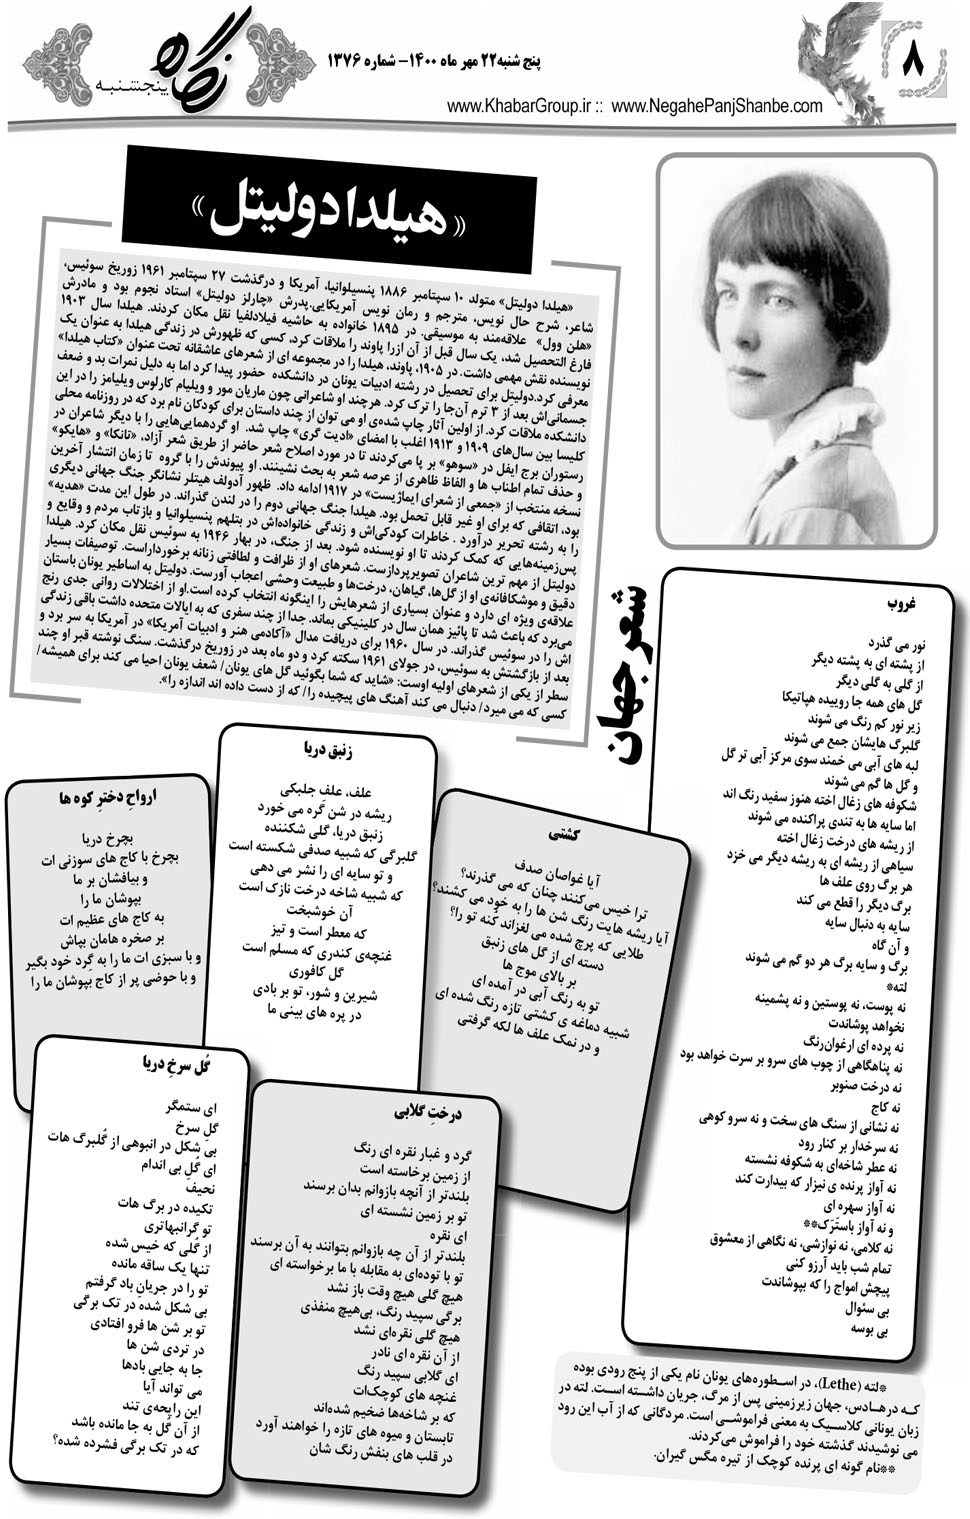 ۸
پنج شنبه ۲۲ مهر ماه ۱۴۰۰- شماره ۱۳۷۶
www.KhabarGroup.ir :: www.NegahePanjShanbe.com
نگاه
پنجشنبه
«هیلدا دولیتل»
«هیلدا دولیتل» متولد ۱۰ سپتامبر ۱۸۸۶ پنسیلوانیا، آمریکا و درگذشت ۲۷ سپتامبر ۱۹۶۱ زوریخ سوئیس،
شاعر، شرح حال نویس، مترجم و رمان نویس آمریکایی.پدرش «چارلز دولیتل» استاد نجوم بود و مادرش
«هلن وول» علاقه‌مند به موسیقی. در ۱۸۹۵ خانواده به حاشیه فیلادلفیا نقل مکان کردند. هیلدا سال ۱۹۰۳
فارغ التحصیل شد، یک سال قبل از آن ازرا پاوند را ملاقات کرد، کسی که ظهورش در زندگی هیلدا به عنوان یک
نویسنده نقش مهمی داشت. در ۱۹۰۵، پاوند، هیلدا را در مجموعه ای از شعرهای عاشقانه تحت عنوان «کتاب هیلدا»
معرفی کرد.دولیتل برای تحصیل در رشته ادبیات یونان در دانشکده حضور پیدا کرد اما به دلیل نمرات بد و ضعف
جسمانی‌اش بعد از ۳ ترم آن‌جا را ترک کرد. هرچند او شاعرانی چون ماریان مور و ویلیام کارلوس ویلیامز را در این
دانشکده ملاقات کرد. از اولین آثار چاپ شده‌ی او می توان از چند داستان برای کودکان نام برد که در روزنامه محلی
کلیسا بین سال‌های ۱۹۰۹ و ۱۹۱۳ اغلب با امضای «ادیت گری» چاپ شد. او گردهمایی‌هایی را با دیگر شاعران در
رستوران برج ایفل در «سوهو» بر پا می‌کردند تا در مورد اصلاح شعر حاضر از طریق شعر آزاد، «تانکا» و «هایکو»
و حذف تمام اطناب ها و الفاظ ظاهری از عرصه شعر به بحث نشینند. او پیوندش را با گروه تا زمان انتشار آخرین
نسخه منتخب از «جمعی از شعرای ایماژیست» در ۱۹۱۷ ادامه داد. ظهور آدولف هیتلر نشانگر جنگ جهانی دیگری
بود، اتفاقی که برای او غیر قابل تحمل بود. هیلدا جنگ جهانی دوم را در لندن گذراند. در طول این مدت «هدیه»
را به رشته تحریر درآورد . خاطرات کودکی‌اش و زندگی خانواده‌اش در بتلهم پنسیلوانیا و بازتاب مردم و وقایع و
پس‌زمینه‌هایی که کمک کردند تا او نویسنده شود. بعد از جنگ، در بهار ۱۹۴۶ به سوئیس نقل مکان کرد. هیلدا
دولیتل از مهم ترین شاعران تصویرپردازست. شعرهای او از ظرافت و لطافتی زنانه برخورداراست. توصیفات بسیار
دقیق و موشکافانه‌ی او از گل‌ها، گیاهان، درخت‌ها و طبیعت وحشی اعجاب آورست. دولیتل به اساطیر یونان باستان
علاقه‌ی ویژه ای دارد و عنوان بسیاری از شعرهایش را اینگونه انتخاب کرده است.او از اختلالات روانی جدی رنج
می‌برد که باعث شد تا پائیز همان سال در کلینیکی بماند. جدا از چند سفری که به ایالات متحده داشت باقی زندگی
اش را در سوئیس گذراند. در سال ۱۹۶۰ برای دریافت مدال «آکادمی هنر و ادبیات آمریکا» در آمریکا به سر برد و
بعد از بازگشتش به سوئیس، در جولای ۱۹۶۱ سکته کرد و دو ماه بعد در زوریخ درگذشت. سنگ نوشته قبر او چند
سطر از یکی از شعرهای اولیه اوست: «شاید که شما بگوئید گل های یونان/ شعف یونان احیا می کند برای همیشه/
کسی که می میرد/ دنبال می کند آهنگ های پیچیده را/ که از دست داده اند اندازه را».
شعر جهان
غروب
نور می گذرد
از پشته ای به پشته دیگر
از گلی به گلی دیگر
گل های همه جا روییده هپاتیکا
زیر نور کم رنگ می شوند
گلبرگ هایشان جمع می شوند
لبه های آبی می خمند سوی مرکز آبی تر گل
و گل ها گم می شوند
شکوفه های زغال اخته هنوز سفید رنگ اند
اما سایه ها به تندی پراکنده می شوند
از ریشه های درخت زغال اخته
سیاهی از ریشه ای به ریشه دیگر می خزد
هر برگ روی علف ها
برگ دیگر را قطع می کند
سایه به دنبال سایه
و آن گاه
برگ و سایه برگ هر دو گم می شوند
لته*
نه پوست، نه پوستین و نه پشمینه
نخواهد پوشاندت
نه پرده ای ارغوان‌رنگ
نه پناهگاهی از چوب های سرو بر سرت خواهد بود
نه درخت صنوبر
نه کاج
نه نشانی از سنگ های سخت و نه سرو کوهی
نه سرخدار بر کنار رود
نه عطر شاخه‌ای به شکوفه نشسته
نه آواز پرنده ی نیزار که بیدارت کند
نه آواز سهره ای
و نه آواز باسترک**
نه کلامی، نه نوازشی، نه نگاهی از معشوق
تمام شب باید آرزو کنی
پیچش امواج را که بپوشاندت
بی سئوال
بی بوسه
*لته (Lethe)، در اسطوره‌های یونان نام یکی از پنج رودی بوده
که درهادس، جهان زیرزمینی پس از مرگ، جریان داشته است. لته در
زبان یونانی کلاسیک به معنی فراموشی است. مردگانی که از آب این رود
می نوشیدند گذشته خود را فراموش می‌کردند.
**نام گونه ای پرنده کوچک از تیره مگس گیران.
کشتی
آیا غواصان صدف
ترا خیس می‌کنند چنان که می گذرند؟
آیا ریشه هایت رنگ شن ها را به خود می کشند؟
طلایی که پرچ شده می لغزاند کُنه تو را؟
دسته ای از گل های زنبق
بر بالای موج ها
تو به رنگ آبی در آمده ای
شبیه دماغه ی کشتی تازه رنگ شده ای
و در نمک علف ها لکه گرفتی
زنبق دریا
علف، علفِ جلبکی
ریشه در شن گره می خورد
زنبق دریا، گلی شکننده
گلبرگی که شبیه صدفی شکسته است
و تو سایه ای را نشر می دهی
که شبیه شاخه درخت نازک است
آن خوشبخت
که معطر است و تیز
غنچه‌ی کندری که مسلم است
گل کافوری
شیرین و شور، تو بر بادی
در پره های بینی ما
ارواحِ دخترِ کوه ها
بچرخ دریا
بچرخ با کاج های سوزنی ات
و بیافشان بر ما
بپوشان ما را
به کاج های عظیم ات
بر صخره هامان بپاش
و با سبزی ات ما را به گِرد خود بگیر
و با حوضی پر از کاج بپوشان ما را
درختِ گلابی
گرد و غبار نقره ای رنگ
از زمین برخاسته است
بلندتر از آنچه بازوانم بدان برسند
تو بر زمین نشسته ای
ای نقره
بلندتر از آن چه بازوانم بتوانند به آن برسند
تو با توده‌ای به مقابله با ما برخواسته ای
هیچ گلی هیچ وقت باز نشد
برگی سپید رنگ، بی‌هیچ منفذی
هیچ گلی نقره‌ای نشد
از آن نقره ای نادر
ای گلابی سپید رنگ
غنچه های کوچک‌ات
که بر شاخه‌ها ضخیم شده‌اند
تابستان و میوه های تازه را خواهند آورد
در قلب های بنفش رنگ شان
گُل سرخِ دریا
ای ستمگر
گلِ سرخ
بی شکل در انبوهی از گُلبرگ هات
ای گُلِ بی اندام
نحیف
تکیده در برگ هات
تو گرانبهاتری
از گلی که خیس شده
تنها یک ساقه مانده
تو را در جریانِ باد گرفتم
بی شکل شده در تک برگی
تو بر شن ها فرو افتادی
در تردی شن ها
جا به جایی بادها
می تواند آیا
این رایحه‌ی تند
از آن گل به جا مانده باشد
که در تک برگی فشرده شده؟